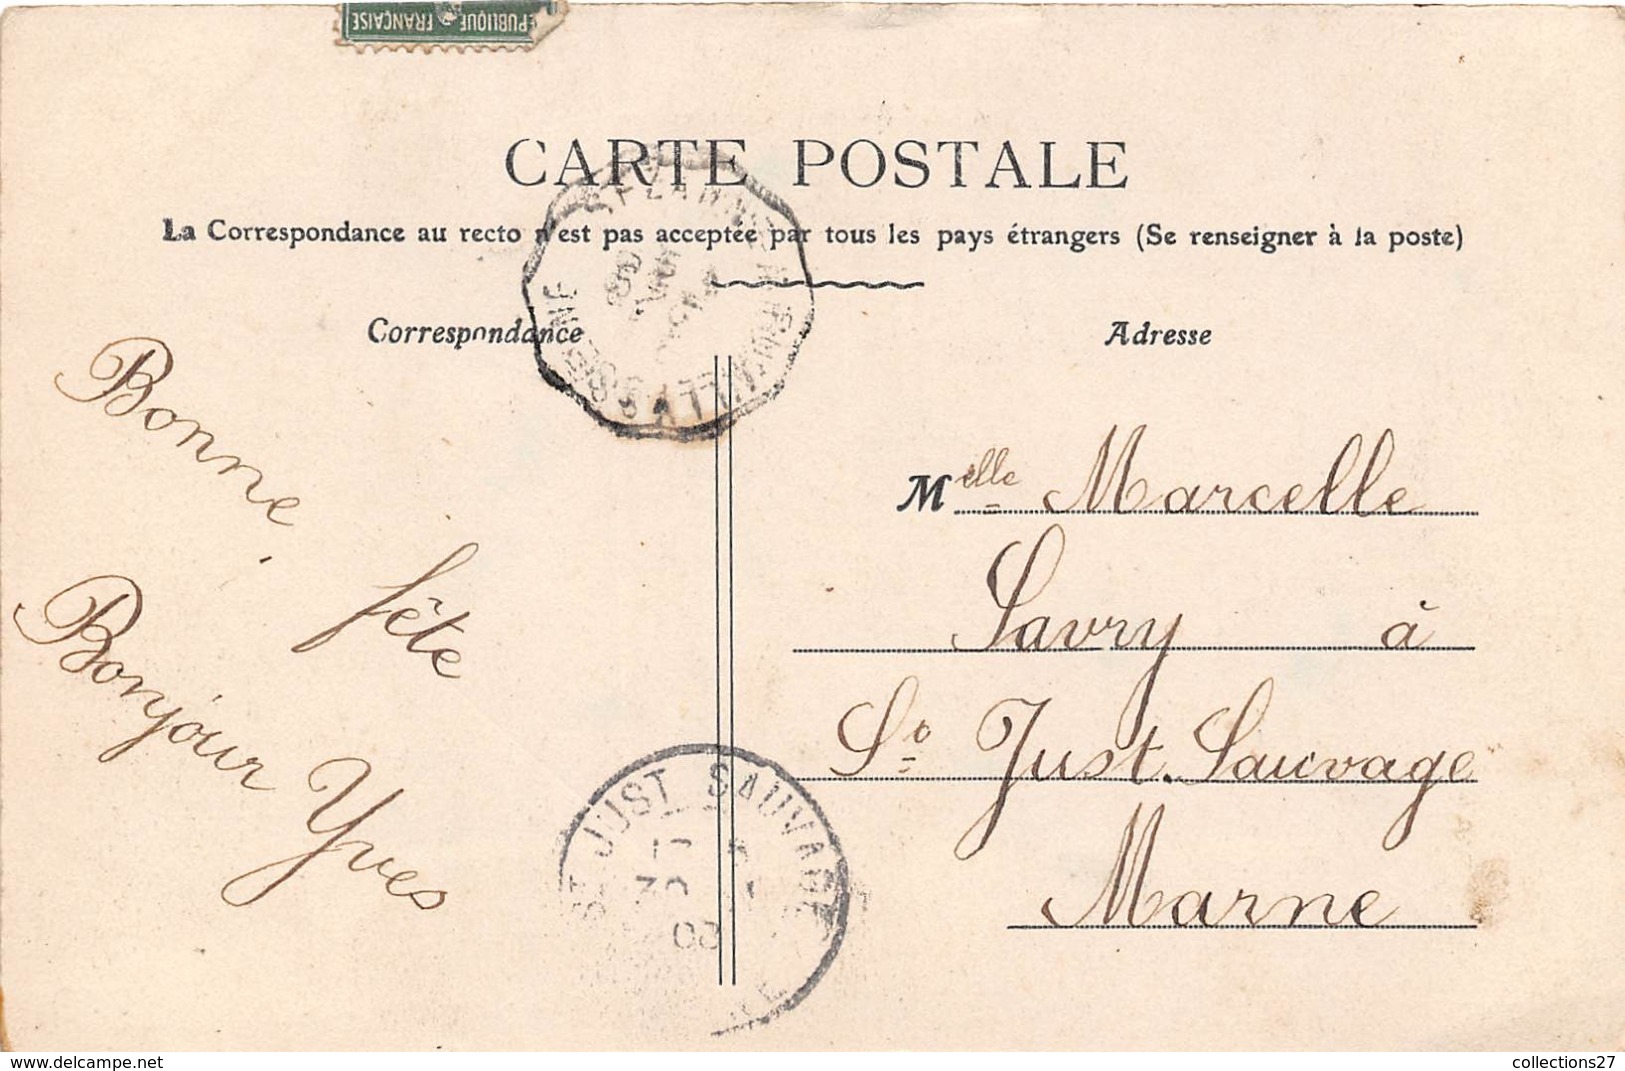 RÉPUBLIQUE FRANÇAISE
CARTE POSTALE
La Correspondance au recto n'est pas acceptée par tous les pays étrangers (Se renseigner à la poste)
Correspondance
Adresse
Bonne fête
Bonjour Yves
Melle Marcelle
Savry à
St Just. Sauvage
Marne
ST JUST SAUVAGE
30
08
delcampe.net
collections27